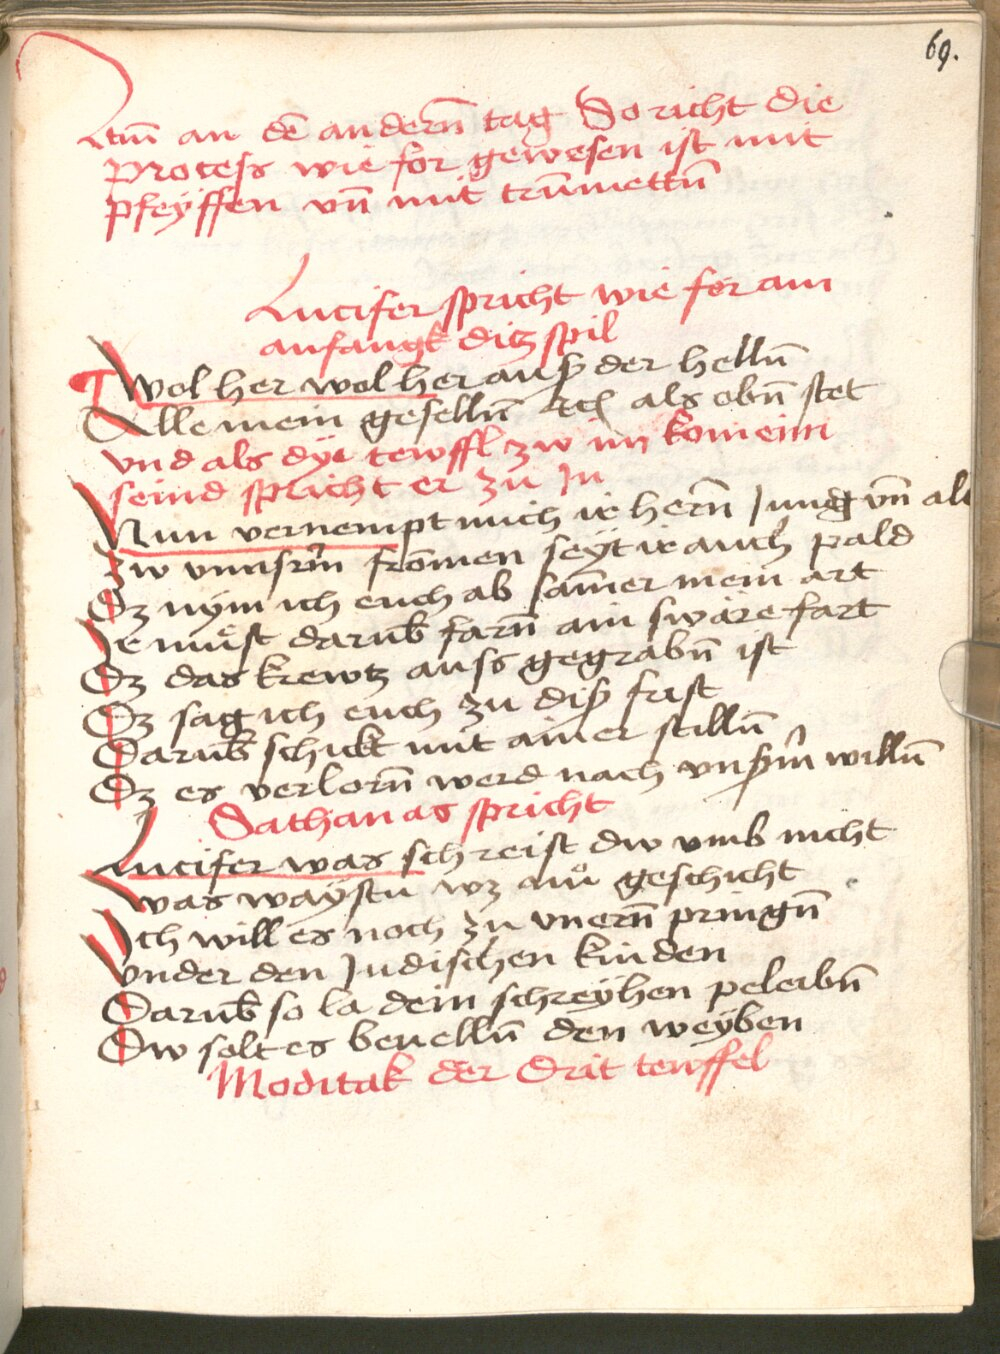 69.
Itm̄ an dē andern̄ tag So richt die
Process wie for gewesen ist mit
pfeyffen vn̄ mit trūmettn̄
Lucifer spricht wie for am
anfangk ditz spil
Wol her wol her auß der helln̄
Alle mein geselln̄ etc als obn̄ stet
vnd als dye tewffl zw im komenn
seind spricht er zu In
Nun vernempt mich ir hern̄ Jung vn̄ alt
Zw vnnsrm̄ fromen seyt ir auch pald
Dz nym ich euch ab samer mein art
Ir müst darūb farn̄ ain swäre fart
Dz das krewtz auss gegrabn̄ ist
Dz sag ich euch zu diß frist
Darūb schickt mit ainer stilln̄
Dz es verlorn̄ werd nach vnßrm̄ willn̄
Sathanas spricht
Lucifer was schreist dw vmb nicht
was waystu wz amͦ geschicht
Ich will es noch zu vnern̄ pringn̄
vnder den Judischen kinden
Darūb so la dein schreyhen peleibn̄
Dw solt es beuelln̄ den weyben
Moditak der drit tewffel